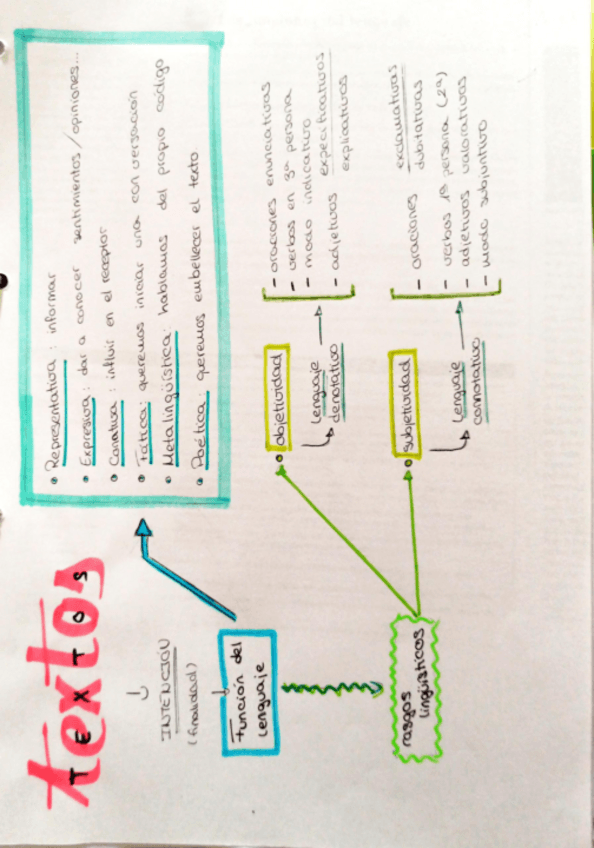 textos
TEXTOS
INTENCIÓN
(finalidad)
Función del
lenguaje
• Representativa: informar
• Expresiva: dar a conocer sentimientos/opiniones...
• Conativa: influir en el receptor
• Fática: queremos iniciar una conversación
• Metalingüística: hablamos del propio código
• Poética: queremos embellecer el texto.
rasgos
lingüísticos
• objetividad
Lenguaje
denotativo
- oraciones enunciativas
- verbos en 3ª persona
- modo indicativo
- adjetivos expecificativos
explicativos
• subjetividad
Lenguaje
connotativo
- oraciones exclamativas
dubitativas
- verbos 1ª persona (2ª)
- adjetivos valorativos
- modo subjuntivo